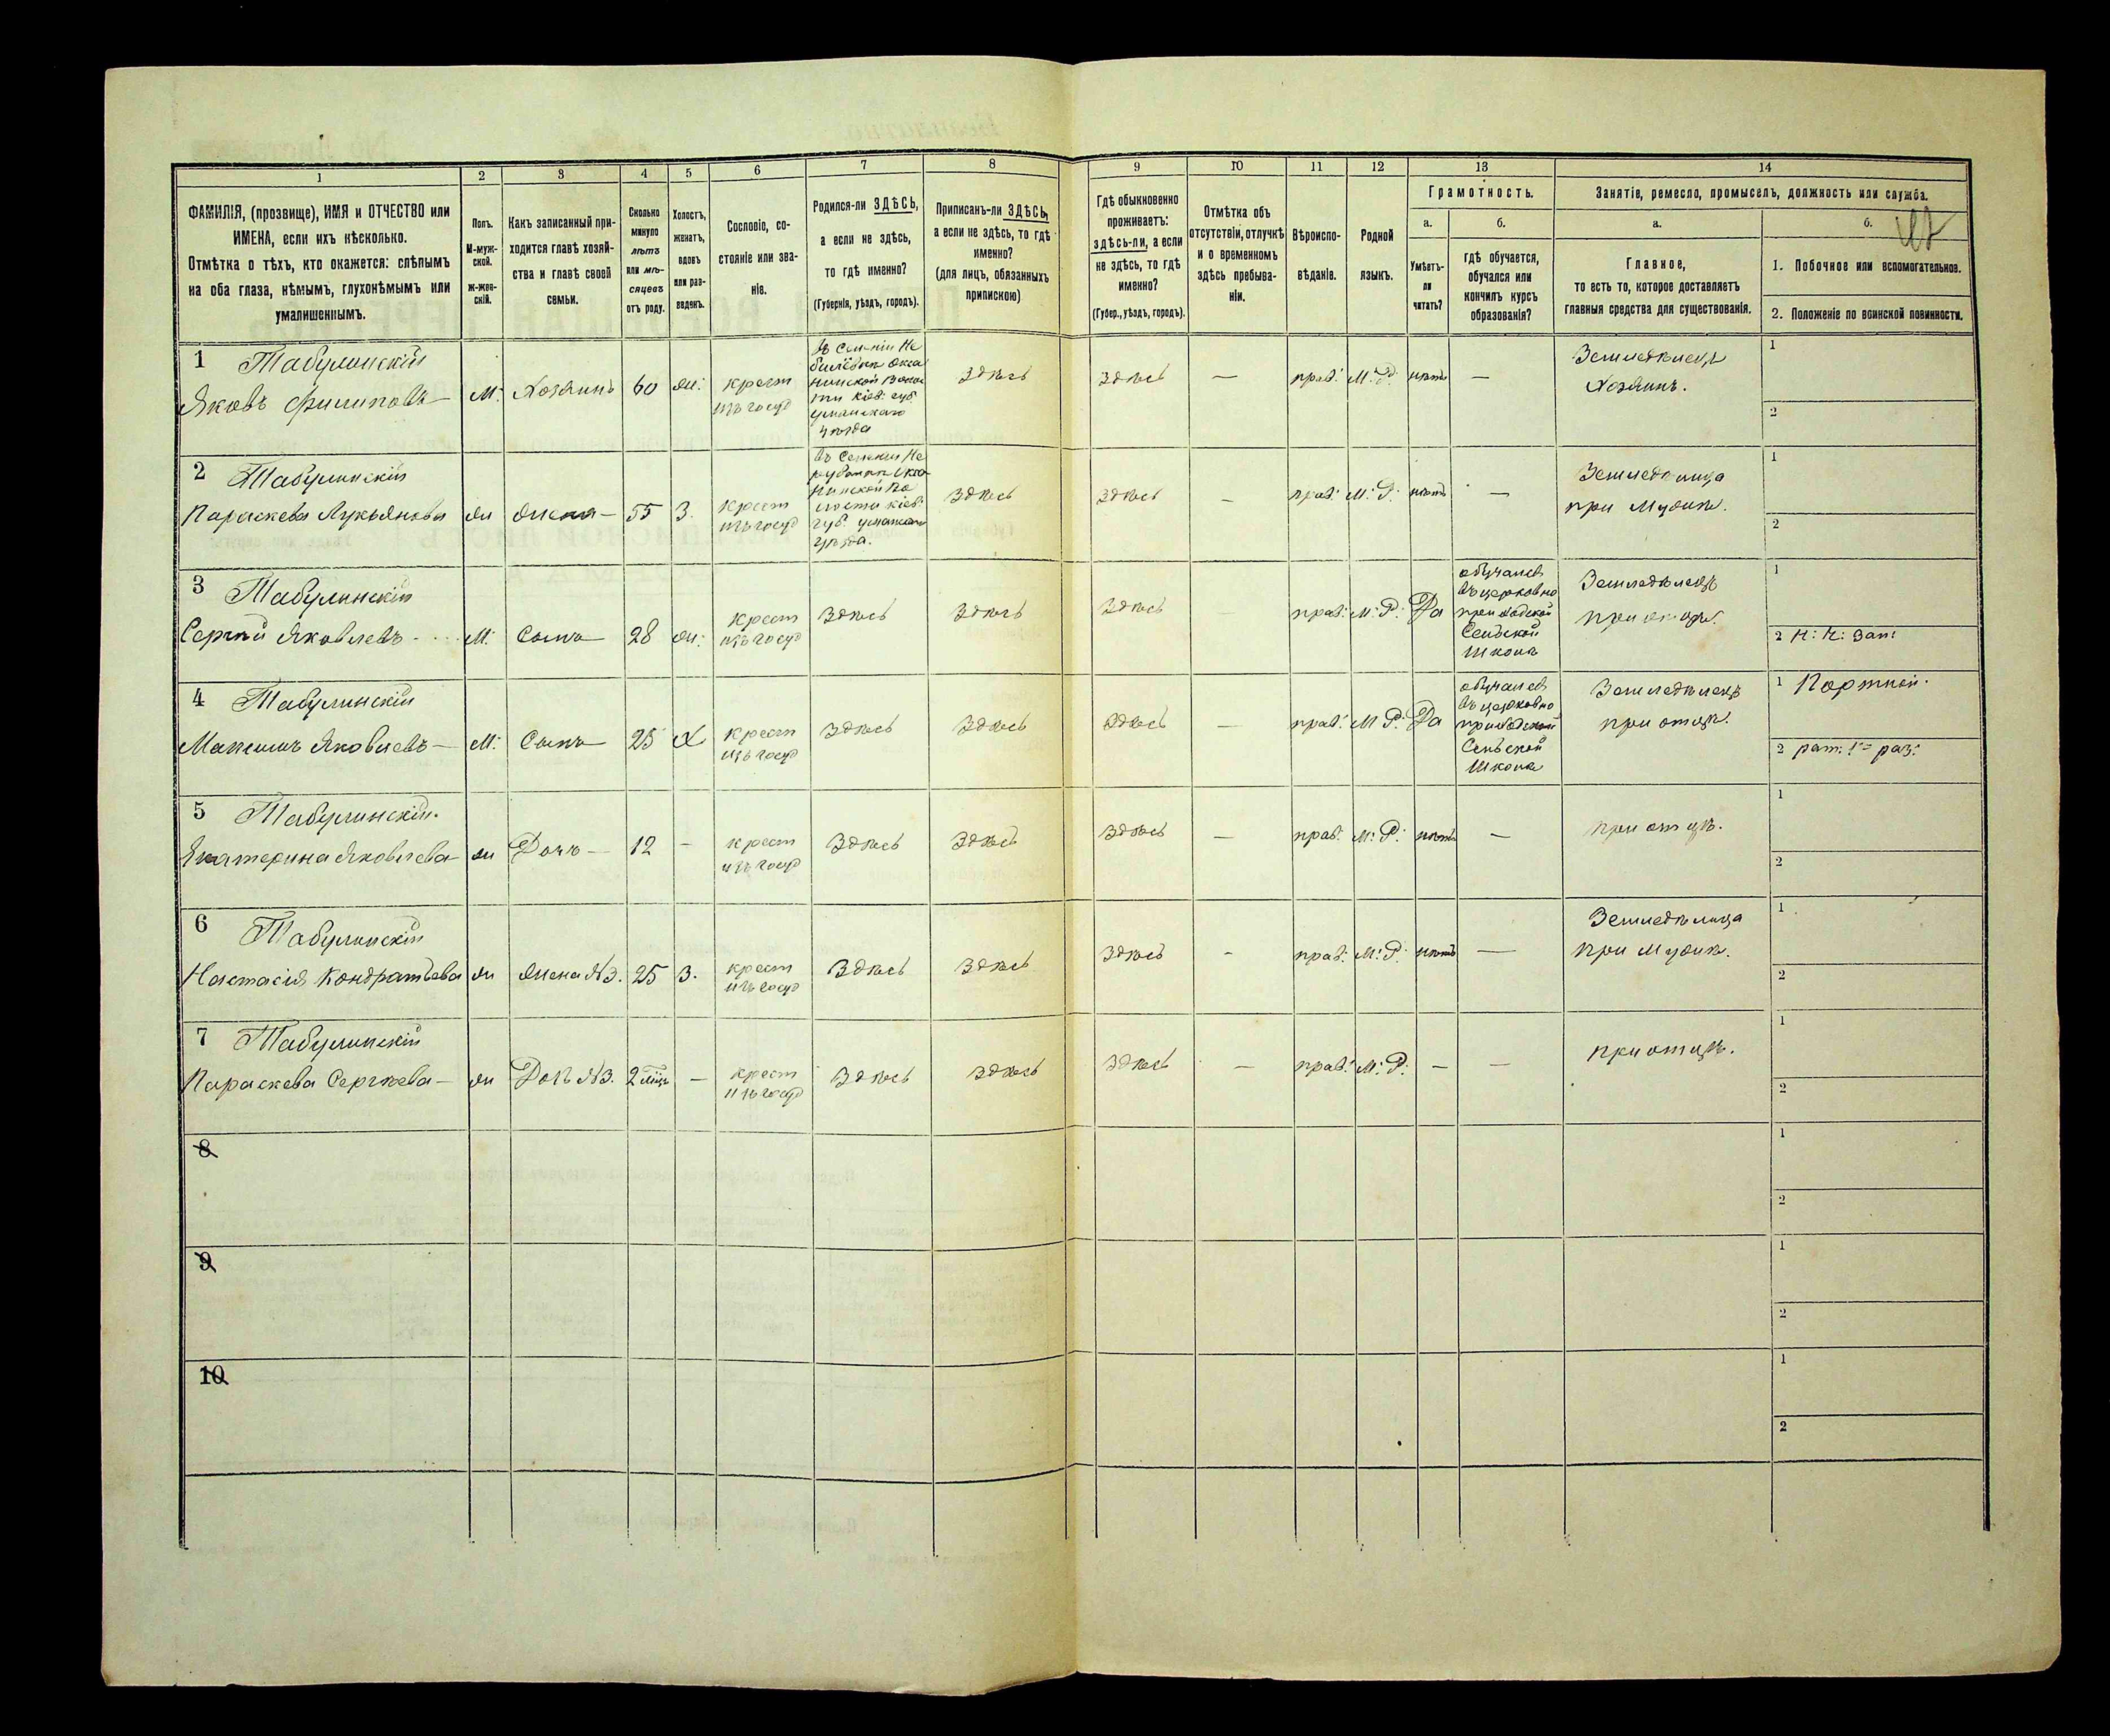 1 2 3 4 5 6 7 8 9 10 11 12 13 14
ФАМИЛІЯ, (прозвище), ИМЯ и ОТЧЕСТВО или
ИМЕНА, если ихъ нѣсколько.
Отмѣтка о тѣхъ, кто окажется: слѣпымъ
на оба глаза, нѣмымъ, глухонѣмымъ или
умалишеннымъ.
Полъ.
М-муж-
ской.
ж-жен-
скій.
Какъ записанный при-
ходится главѣ хозяй-
ства и главѣ своей
семьи.
Сколько
минуло
лѣтъ
или мѣ-
сяцевъ
отъ роду.
Холостъ,
женатъ,
вдовъ
или раз-
веденъ.
Сословіе, со-
стояніе или зва-
ніе.
Родился-ли ЗДѢСЬ,
а если не здѣсь,
то гдѣ именно?
(Губернія, уѣздъ, городъ).
Приписанъ-ли ЗДѢСЬ,
а если не здѣсь, то гдѣ
именно?
(для лицъ, обязанныхъ
припискою)
Гдѣ обыкновенно
проживаетъ:
здѣсь-ли, а если
не здѣсь, то гдѣ
именно?
(Губер., уѣздъ, городъ).
Отмѣтка объ
отсутствіи, отлучкѣ
и о временномъ
здѣсь пребыва-
ніи.
Вѣроиспо-
вѣданіе.
Родной
языкъ.
Грамотность.
а.
Умѣетъ-
ли
читать?
б.
гдѣ обучается,
обучался или
кончилъ курсъ
образованія?
Занятіе, ремесло, промыселъ, должность или служба.
а.
Главное,
то есть то, которое доставляетъ
главныя средства для существованія.
б.
1. Побочное или вспомогательное.
2. Положеніе по воинской повинности.
1 Табулинскій
Яковъ Филиповъ —
М:
Хозяинъ
60
ж:
крест
изъ госуд
Киев: губ
уманскаго
уѣзда
Здѣсь
Здѣсь
—
прав:
М: Р:
нѣтъ
—
Земледѣлецъ
Хозяинъ.
1
2
2 Табулинскій
Параскева Лукьянова
ж
жена —
55
З.
крест
изъ госуд
губ. уманскаго
уѣзда.
Здѣсь
Здѣсь
—
прав:
М: Р:
нѣтъ
—
при мужѣ.
1
2
3 Табулинскій
Сергѣй Яковлевъ
М:
Сынъ
28
ж:
крест
изъ госуд
Здѣсь
Здѣсь
Здѣсь
—
прав:
М: Р:
Да
обучался
въ церковно
приходской
Сельской
Школѣ
Земледѣлецъ
при отцѣ.
1
2 Н: Ч: Зап:
4 Табулинскій
Максимъ Яковлевъ —
М:
Сынъ
25
Х
крест
изъ госуд
Здѣсь
Здѣсь
Здѣсь
—
прав:
М: Р:
Да
обучался
въ церковно
приходской
Сельской
Школѣ
Земледѣлецъ
при отцѣ.
1 Портной.
2 рат: 1го раз:
5 Табулинскій.
Екатерина Яковлева —
ж
Дочь —
12
—
крест
изъ госуд
Здѣсь
Здѣсь
Здѣсь
—
прав:
М: Р:
нѣтъ
—
при отцѣ.
1
2
6 Табулинскій
Настасія Кондратьева
ж
жена №3.
25
З.
крест
изъ госуд
Здѣсь
Здѣсь
Здѣсь
-
прав:
М: Р:
нѣтъ
—
при мужѣ.
1
2
7 Табулинскій
Параскева Сергѣева —
ж
№3.
2 мѣс
—
крест
изъ госуд
Здѣсь
Здѣсь
Здѣсь
—
прав:
М: Р:
—
—
при отцѣ.
1
2
8
1
2
9
1
2
10
1
2